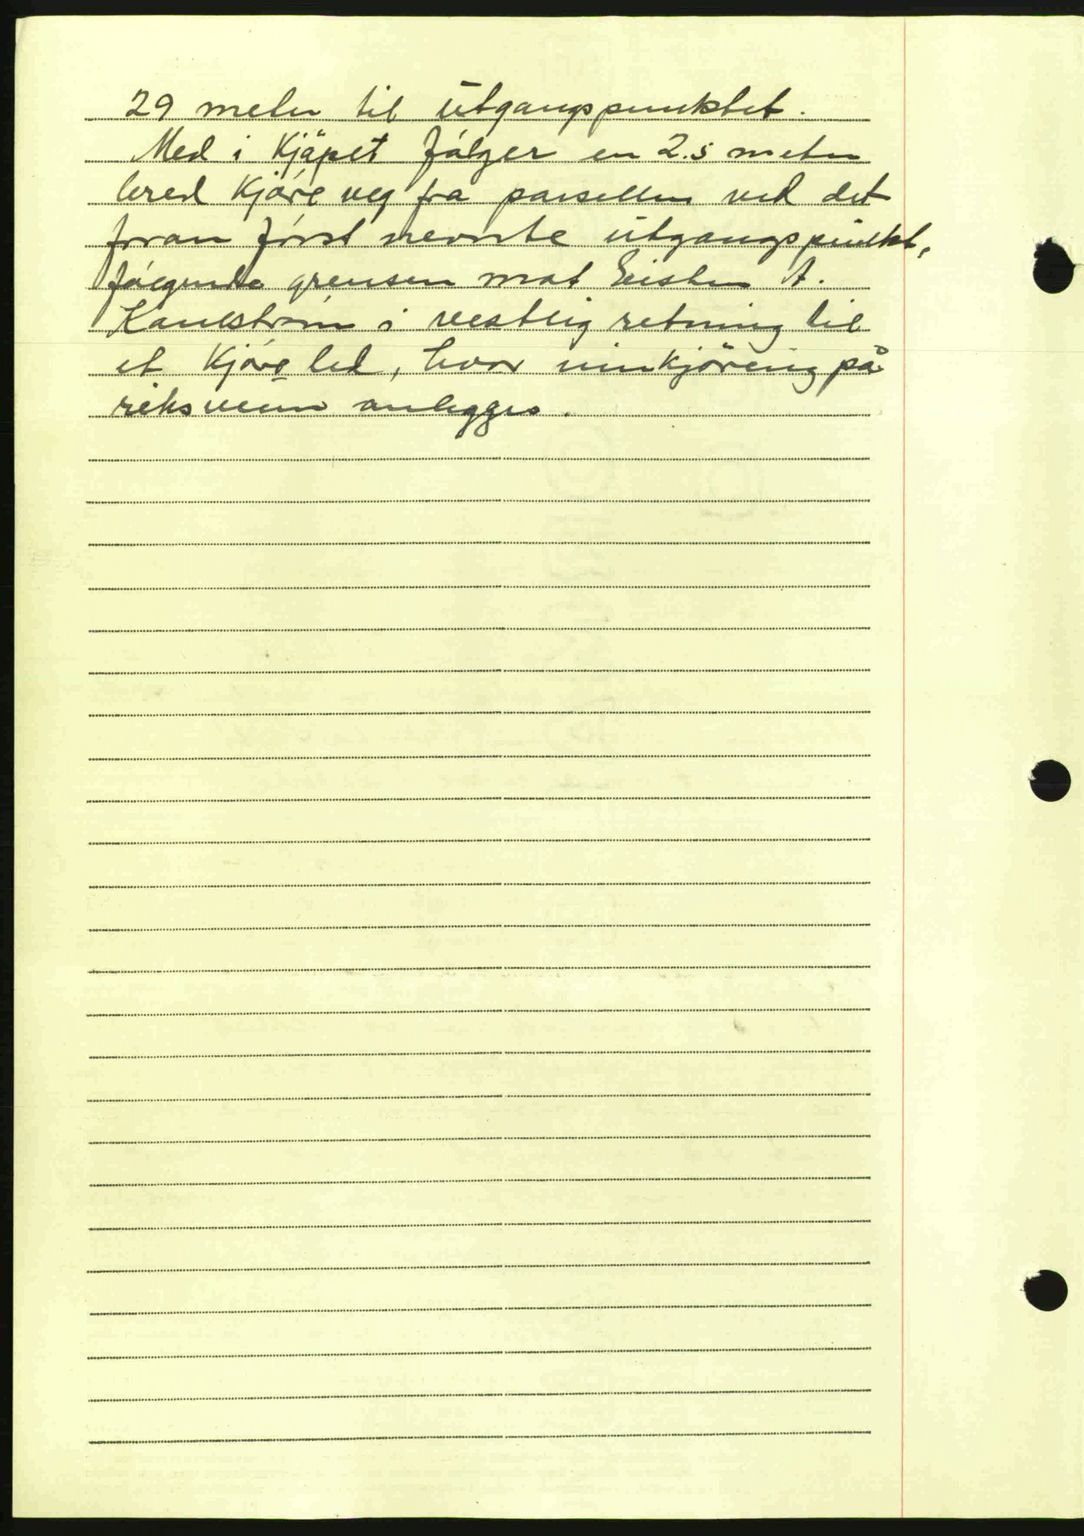 29 meter til utgangspunktet.
Med i Kjöpet fölger en 2.5 meter
bred Kjöre veg fra parsellen ved det
foran först nevnte utgangspunkt,
fölgende grensen mot Eisten A.
Karlström i vestlig retning til
et Kjöre led, hvor innkjöring på
riksveien anlegges.